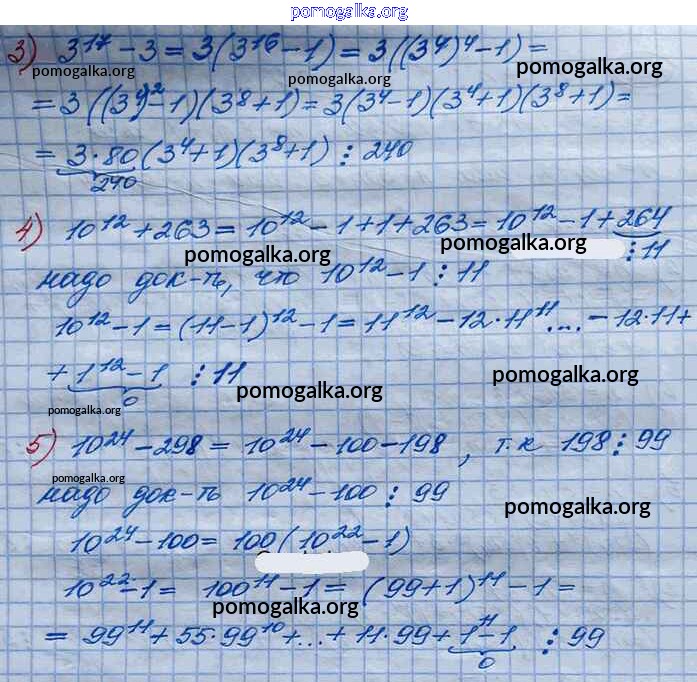 pomogalka.org
3) 3¹⁷ - 3 = 3(3¹⁶ - 1) = 3((3⁴)⁴ - 1) =
pomogalka.org pomogalka.org
= 3((3⁴)² - 1)(3⁸ + 1) = 3(3⁴ - 1)(3⁴ + 1)(3⁸ + 1) =
= 3·80(3⁴ + 1)(3⁸ + 1) ⋮ 240
240
4) 10¹² + 263 = 10¹² - 1 + 1 + 263 = 10¹² - 1 + 264
pomogalka.org pomogalka.org ⋮ 11
надо док-ть, что 10¹² - 1 ⋮ 11
10¹² - 1 = (11 - 1)¹² - 1 = 11¹² - 12·11¹¹ ... - 12·11 +
+ 1¹² - 1 ⋮ 11
0
pomogalka.org pomogalka.org
pomogalka.org
5) 10²⁴ - 298 = 10²⁴ - 100 - 198, т.к 198 ⋮ 99
pomogalka.org
надо док-ть 10²⁴ - 100 ⋮ 99
pomogalka.org
10²⁴ - 100 = 100(10²² - 1)
10²² - 1 = 100¹¹ - 1 = (99 + 1)¹¹ - 1 =
pomogalka.org
= 99¹¹ + 55·99¹⁰ + ... + 11·99 + 1¹¹ - 1 ⋮ 99
0